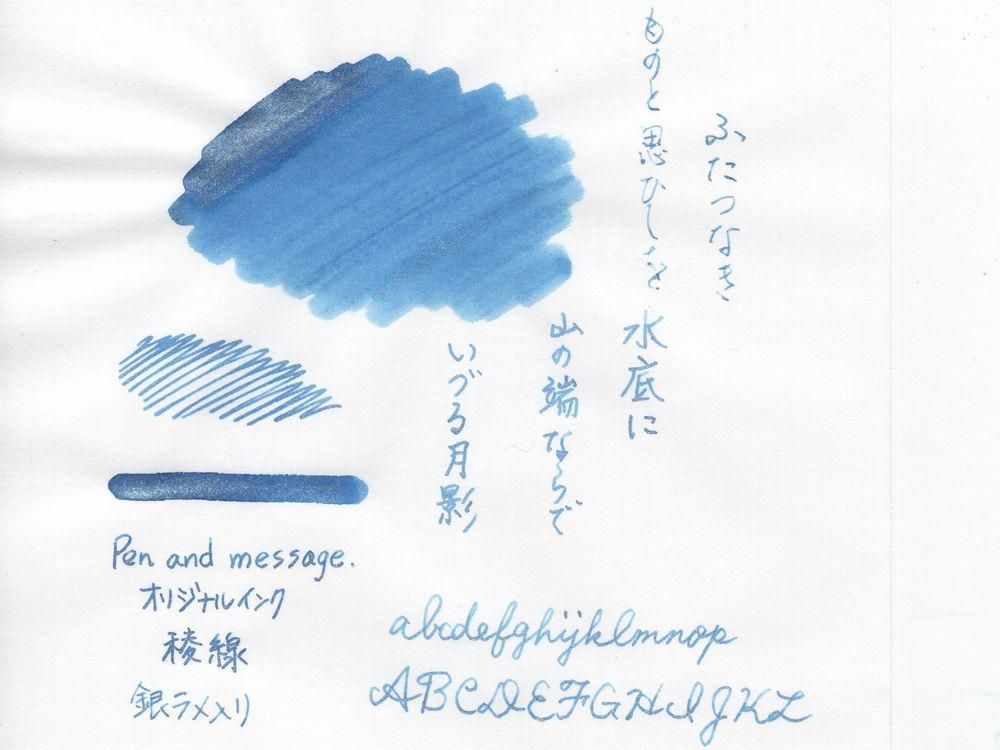 ふたつなき
ものと思ひしを水底に
山の端ならで
いづる月影
Pen and message.
オリジナルインク
稜線
銀ラメ入り
abcdefghijklmnop
ABCDEFGHIJKL